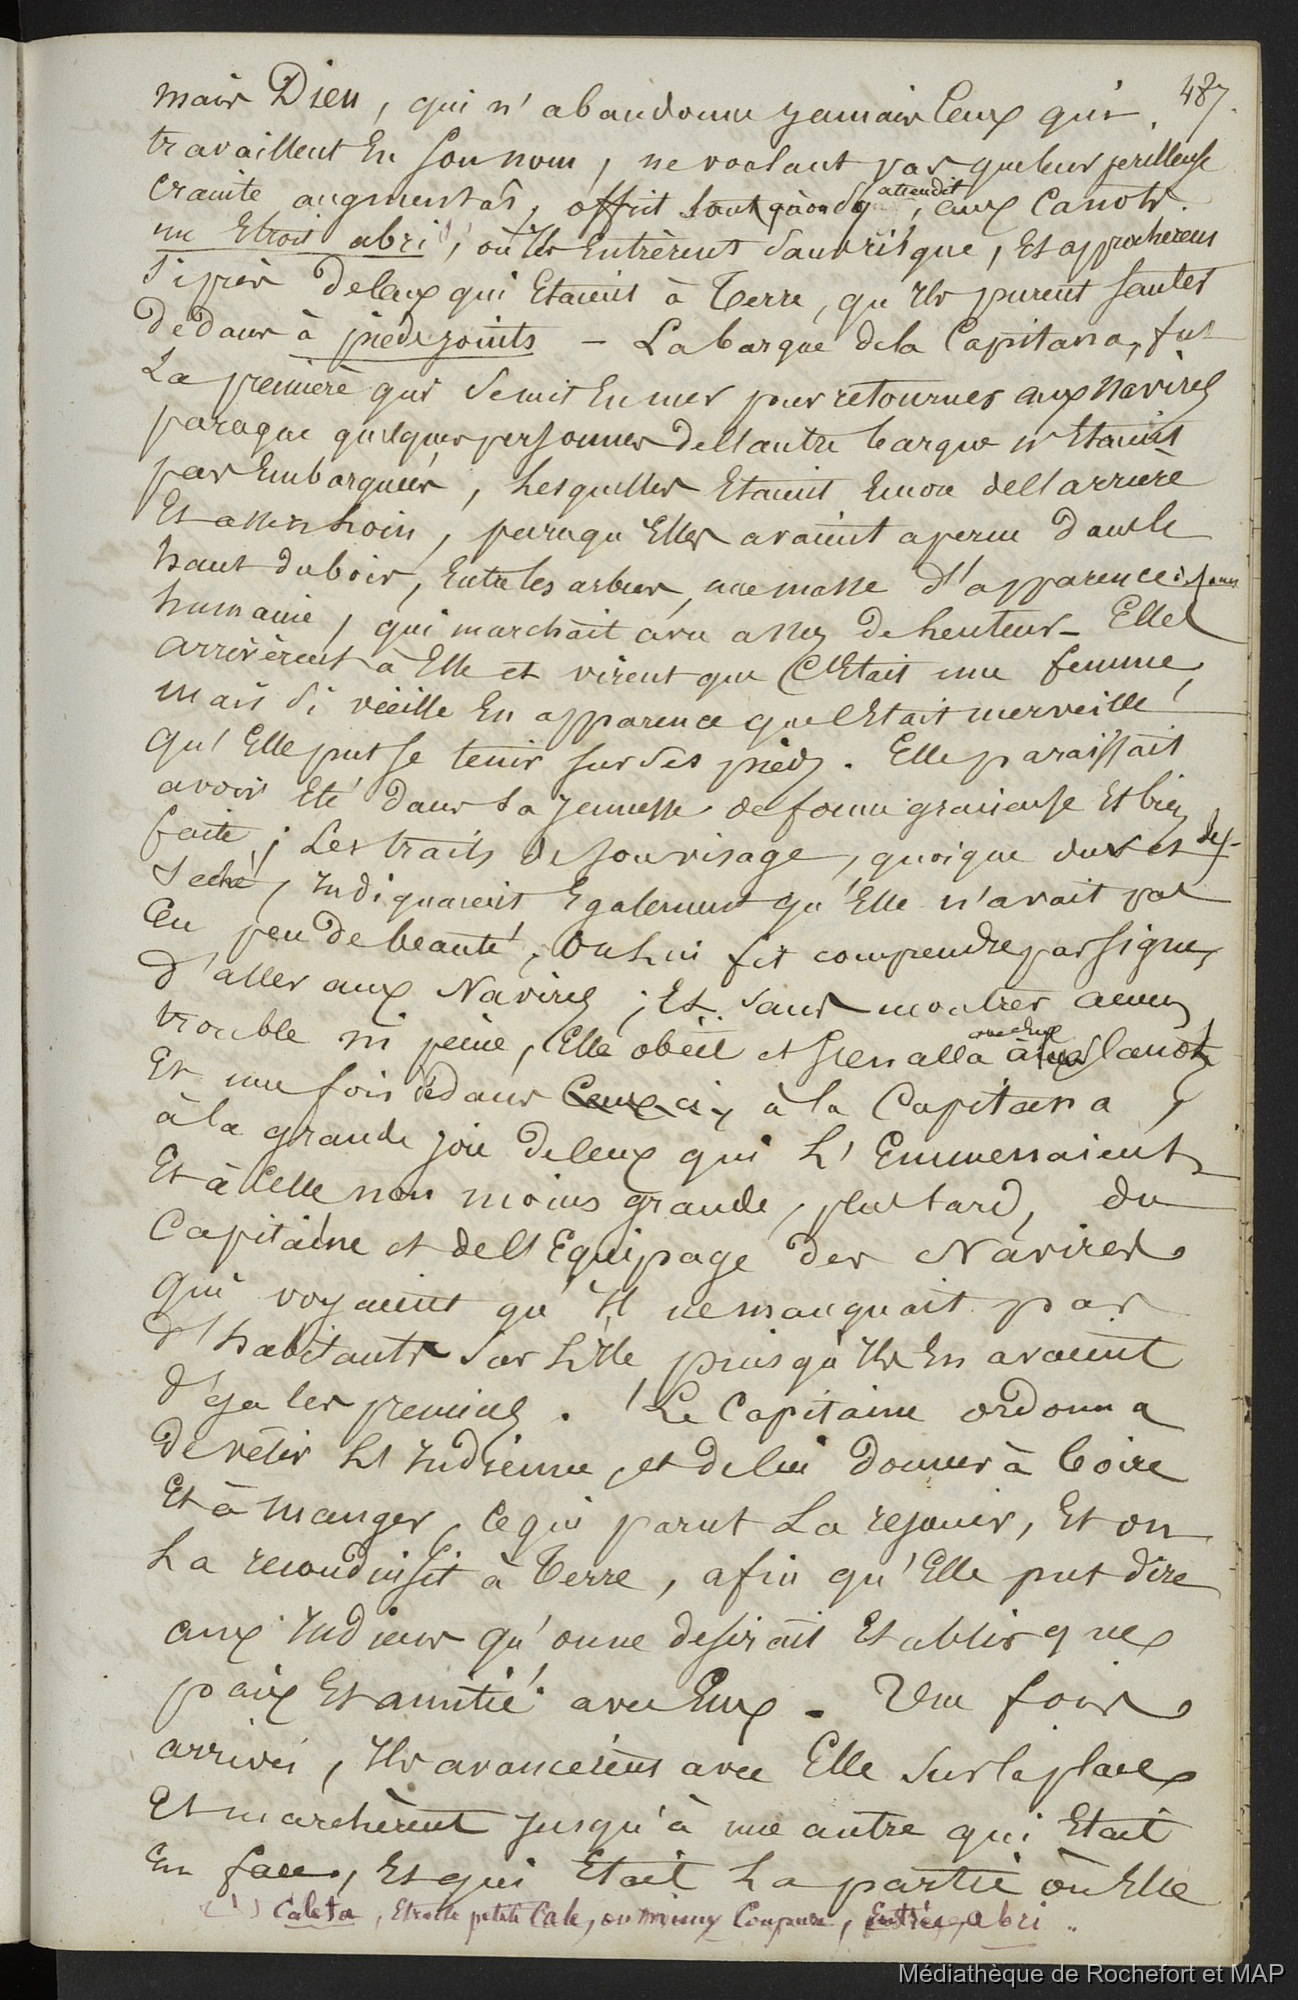 487.
mais Dieu, qui n'abandonne jamais Ceux qui
travaillent En Son nom, ne voulant pas que leur perilleuse
crainte augmentât, offrit sans qu'on s'y attendit, aux Canots
un Etroit abri, où Ils Entrèrent sans risque, Et approcherent
si près de Ceux qui Etaient à Terre, qu'Ils purent sauter
dedans à pieds joints – La barque de la Capitana, fut
La première qui se mit En mer pour retourner aux Navires
parceque quelques personnes de l'autre barque n'Etaient
pas Embarquées, Lesquelles Etaient Encore de l'arriere
Et assez Loin, parcequ'Elles avaient aperçu dans le
haut du bois, Entre les arbres, une masse d'apparence
humaine, qui marchait avec assez de lenteur – Elles
arrivèrent à Elle et virent que C'Etait une femme,
mais si vieille En apparence que C'Etait merveille
qu'Elle put se tenir sur ses pieds. Elle paraissait
avoir Eté dans sa jeunesse de forme gracieuse Et bien
faite; Les traits de son visage, quoique durs et des-
seché, Indiquaient Egalement qu'Elle n'avait pas
Eu peu de beauté, On Lui fit comprendre par signes
d'aller aux Navires; Et sans montrer aucun
trouble ni peine, Elle obéit et s'en alla avec Eux à canots
Et une fois dans Ceux-ci, à la Capitana,
à la grande joie de Ceux qui L'Emmenaient
Et à Celle non moins grande, plus tard, du
Capitaine et de l'Equipage des Navires
qui voyaient qu'Il ne manquait pas
d'habitants sur L'Ile puisqu'Ils En avaient
déja les premiers. Le Capitaine ordonna
de vêtir L'Indienne, et de lui donner à boire
Et à manger, Ce qui parut La rejouir, Et on
La reconduisit à Terre, afin qu'Elle put dire
aux Indiens qu'on ne desirait Etablir que
paix Et amitié avec Eux. Une fois
arrivés, Ils avancèrent avec Elle sur la place
Et marchèrent jusqu'à une autre qui Etait
En face, Et qui Etait La partie où Elle
(1) Caleta, Etroite petite Cale, ou mieux Coupure, Entrée, abri.
Médiathèque de Rochefort et MAP